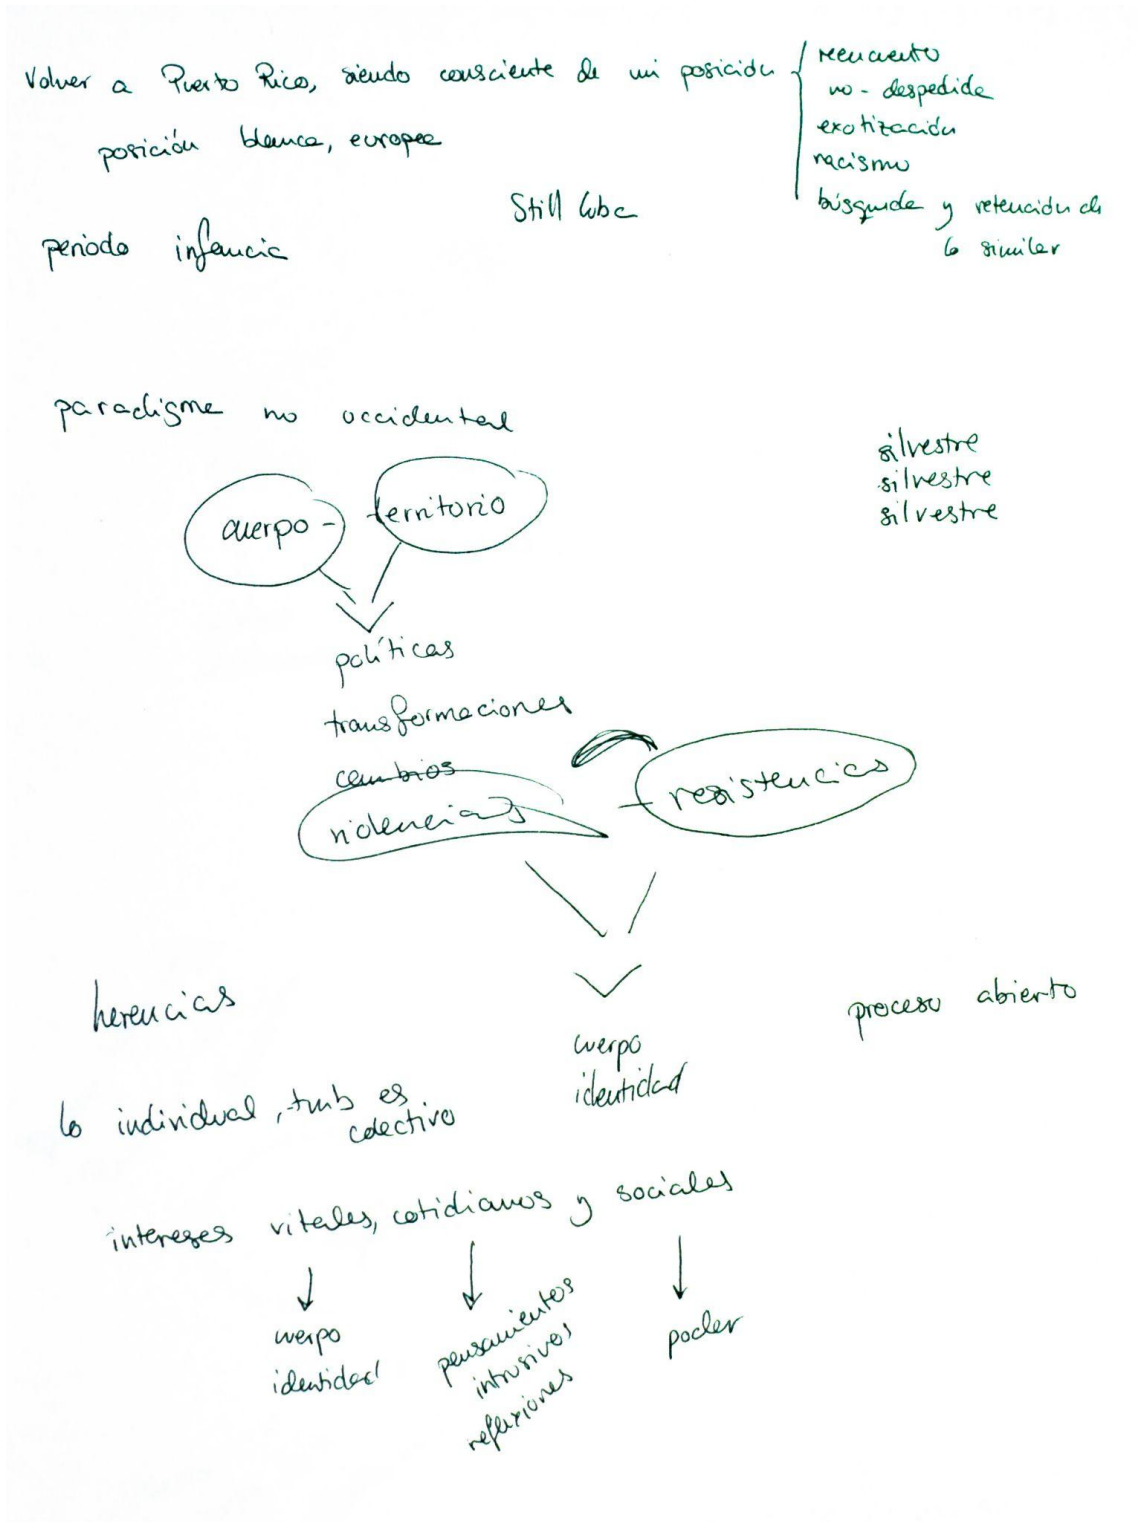 Volver a Puerto Rico, siendo consciente de mi posición
reencuento
no-despedida
exotización
racismo
búsqueda y retención de
lo similar
posición blanca, europea
Still Cuba
periodo infancia
paradigma no occidental
silvestre
silvestre
silvestre
cuerpo - territorio
políticas
transformaciones
cambios
violencias - resistencias
herencias
proceso abierto
cuerpo
identidad
lo individual, tmb es
colectivo
intereses vitales, cotidianos y sociales
cuerpo
identidad
pensamientos
intrusivos
reflexiones
poder